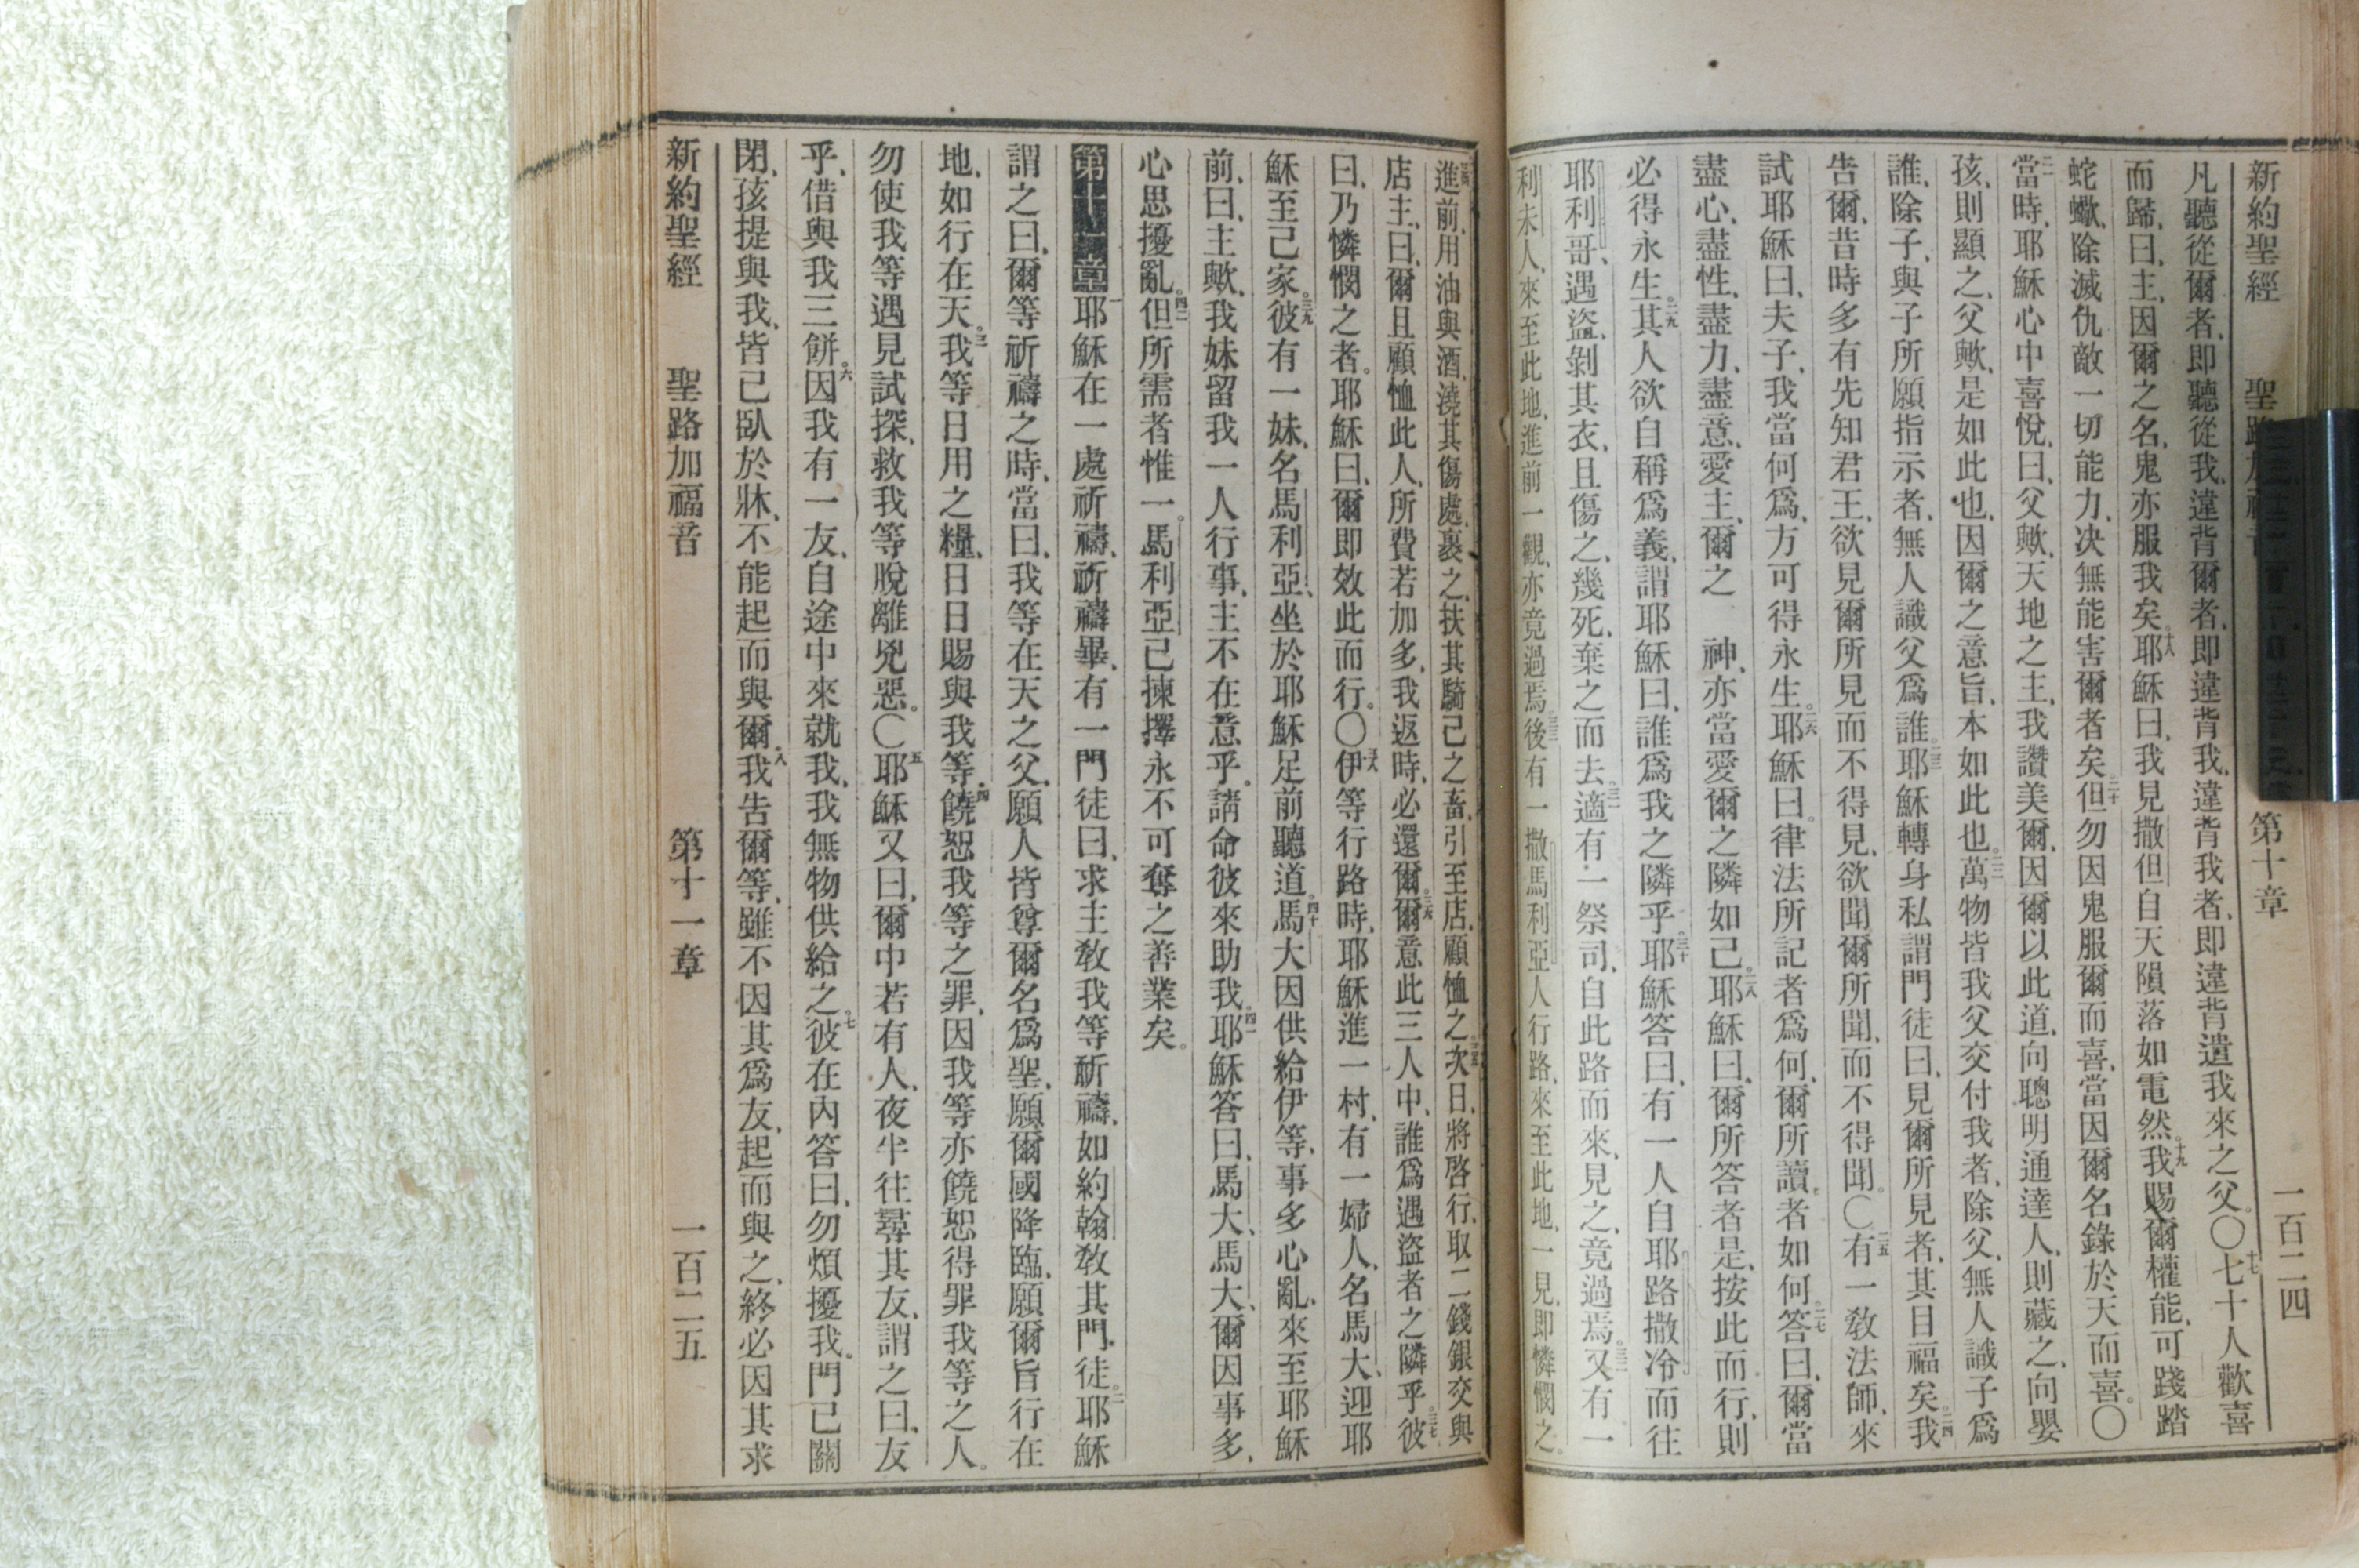 新約聖經 聖路加福音 第十章 一百二四
凡聽從爾者、即聽從我、違背爾者、即違背我、違背我者、即違背遣我來之父。〇十七七十人歡喜
而歸、曰、主、因爾之名、鬼亦服我矣。十八耶穌曰、我見撒但自天隕落如電然。十九我賜爾權能、可踐踏
蛇蠍、除滅仇敵一切能力、决無能害爾者矣。二十但勿因鬼服爾而喜、當因爾名錄於天而喜。〇
二一當時、耶穌心中喜悅、曰、父歟、天地之主、我讚美爾、因爾以此道、向聰明通達人、則藏之、向嬰
孩、則顯之、父歟、是如此也、因爾之意旨、本如此也。二二萬物皆我父交付我者、除父、無人識子爲
誰、除子、與子所願指示者、無人識父爲誰。二三耶穌轉身私謂門徒曰、見爾所見者、其目福矣。二四我
告爾、昔時多有先知君王、欲見爾所見而不得見、欲聞爾所聞、而不得聞。〇二五有一敎法師、來
試耶穌曰、夫子、我當何爲、方可得永生。二六耶穌曰。律法所記者爲何、爾所讀者如何。二七答曰、爾當
盡心、盡性、盡力、盡意、愛主、爾之 神、亦當愛爾之隣如己。二八耶穌曰、爾所答者是、按此而行、則
必得永生。二九其人欲自稱爲義、謂耶穌曰、誰爲我之隣乎。三十耶穌答曰、有一人自耶路撒冷而往
耶利哥、遇盜、剝其衣、且傷之、幾死、棄之而去。三一適有一祭司、自此路而來、見之、竟過焉。三二又有一
利未人、來至此地、進前一觀、亦竟過焉。三三後有一撒馬利亞人行路、來至此地、一見、即憐憫之。
三四進前、用油與酒、澆其傷處、裹之、扶其騎己之畜、引至店、顧恤之。三五次日、將啓行、取二錢銀交與
店主、曰、爾且顧恤此人、所費若加多、我返時、必還爾。三六爾意此三人中、誰爲遇盜者之隣乎。三七彼
曰、乃憐憫之者。耶穌曰、爾即效此而行。〇三八伊等行路時、耶穌進一村、有一婦人、名馬大、迎耶
穌至己家。三九彼有一妹、名馬利亞、坐於耶穌足前聽道。四十馬大因供給伊等、事多心亂、來至耶穌
前、曰、主歟、我妹留我一人行事、主不在意乎。請命彼來助我。四一耶穌答曰、馬大、馬大、爾因事多、
心思擾亂。四二但所需者惟一。馬利亞已揀擇永不可奪之善業矣。
第十一章 一耶穌在一處祈禱、祈禱畢、有一門徒曰、求主敎我等祈禱、如約翰敎其門徒。二耶穌
謂之曰、爾等祈禱之時、當曰、我等在天之父、願人皆尊爾名爲聖、願爾國降臨、願爾旨行在
地、如行在天。三我等日用之糧、日日賜與我等。四饒恕我等之罪、因我等亦饒恕得罪我等之人。
勿使我等遇見試探、救我等脫離兇惡。〇五耶穌又曰、爾中若有人、夜半往尋其友、謂之曰、友
乎、借與我三餅。六因我有一友、自途中來就我、我無物供給之。七彼在內答曰、勿煩擾我。門已關
閉、孩提與我、皆已臥於牀、不能起而與爾。八我告爾等、雖不因其爲友、起而與之、終必因其求
新約聖經 聖路加福音 第十一章 一百二五